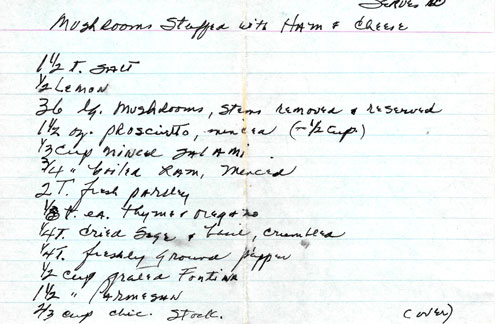 Serves
Mushrooms Stuffed with Ham & Cheese
1 1/2 t. Salt
1/2 Lemon
36 lg. Mushrooms, stems removed & reserved
1 1/2 oz. prosciutto, minced (~1/2 cup)
1/3 cup minced salami
3/4 " boiled ham, minced
2 T. fresh parsley
1/8 t. ea. thyme & oregano
1/4 t. dried sage & basil, crumbled
1/4 t. freshly ground pepper
1/2 cup grated Fontina
1 1/2 " Parmesan
2/3 cup chic. Stock.
(over)